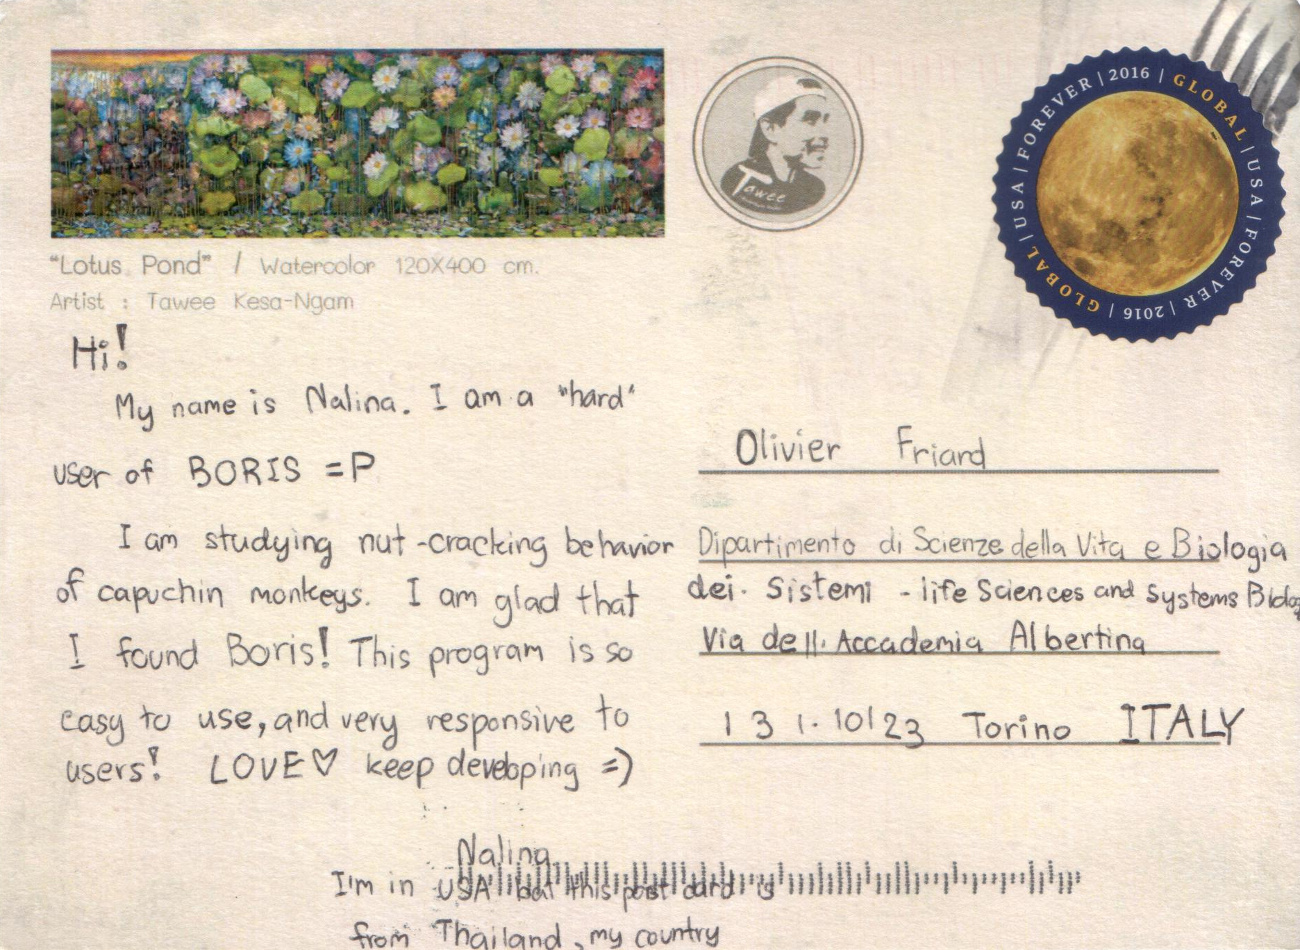 "Lotus Pond" / Watercolor 120X400 cm.
Artist : Tawee Kesa-Ngam
Tawee
GLOBAL | USA | FOREVER | 2016 | GLOBAL | USA | FOREVER | 2016 |
Hi!
My name is Nalina. I am a "hard"
user of BORIS =P
I am studying nut-cracking behavior
of capuchin monkeys. I am glad that
I found Boris! This program is so
easy to use, and very responsive to
users! LOVE♡ keep developing =)
Nalina
I'm in USA but this post card is
from Thailand, my country
Olivier Friard
Dipartimento di Scienze della Vita e Biologia
dei. Sistemi - life Sciences and Systems Biolog
Via dell. Accademia Albertina
13 1. 10123 Torino ITALY